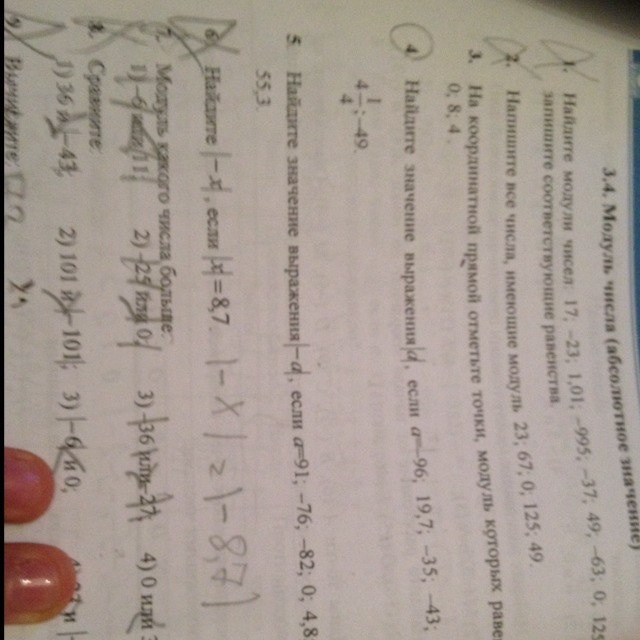 3.4. Модуль числа (абсолютное значение)
1. Найдите модули чисел: 17, −23; 1,01; −995; −37, 49; −63, 0; 125
запишите соответствующие равенства.
2. Напишите все числа, имеющие модуль 23; 67, 0, 125, 49.
3. На координатной прямой отметьте точки, модуль которых равен
0, 8; 4.
4. Найдите значение выражения |a|, если a=−96; 19,7; −35, −43;
4 1/4; −49
5. Найдите значение выражения |−a|, если a=91; −76; −82; 0; 4,8
55,3
6. Найдите |−x|, если |x|=8,7. |−x|=|−8,7|
7. Модуль какого числа больше:
2) −27 или 0; 3) −36 или 4) 0 или
8. Сравните
1) 36 и |−43|; 2) 101 и |−101|; 3) |−6| и 0;